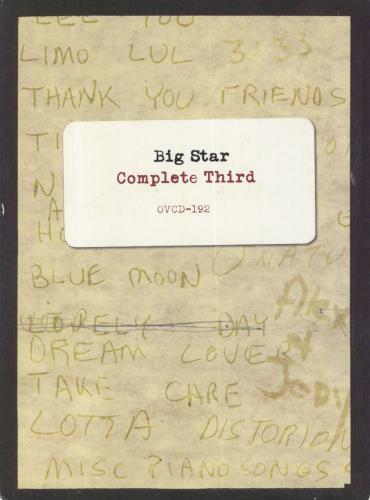 LEE YOU
LIMO LUL 3:33
THANK YOU FRIENDS
TI
Big Star
Complete Third
OVCD-192
N
A
E
HO
O NATU
BLUE MOON
Alex
LOVELY DAY
&
DREAM LOVER
Jody
TAKE CARE
LOTTA DISTORTION
MISC PIANO SONGS